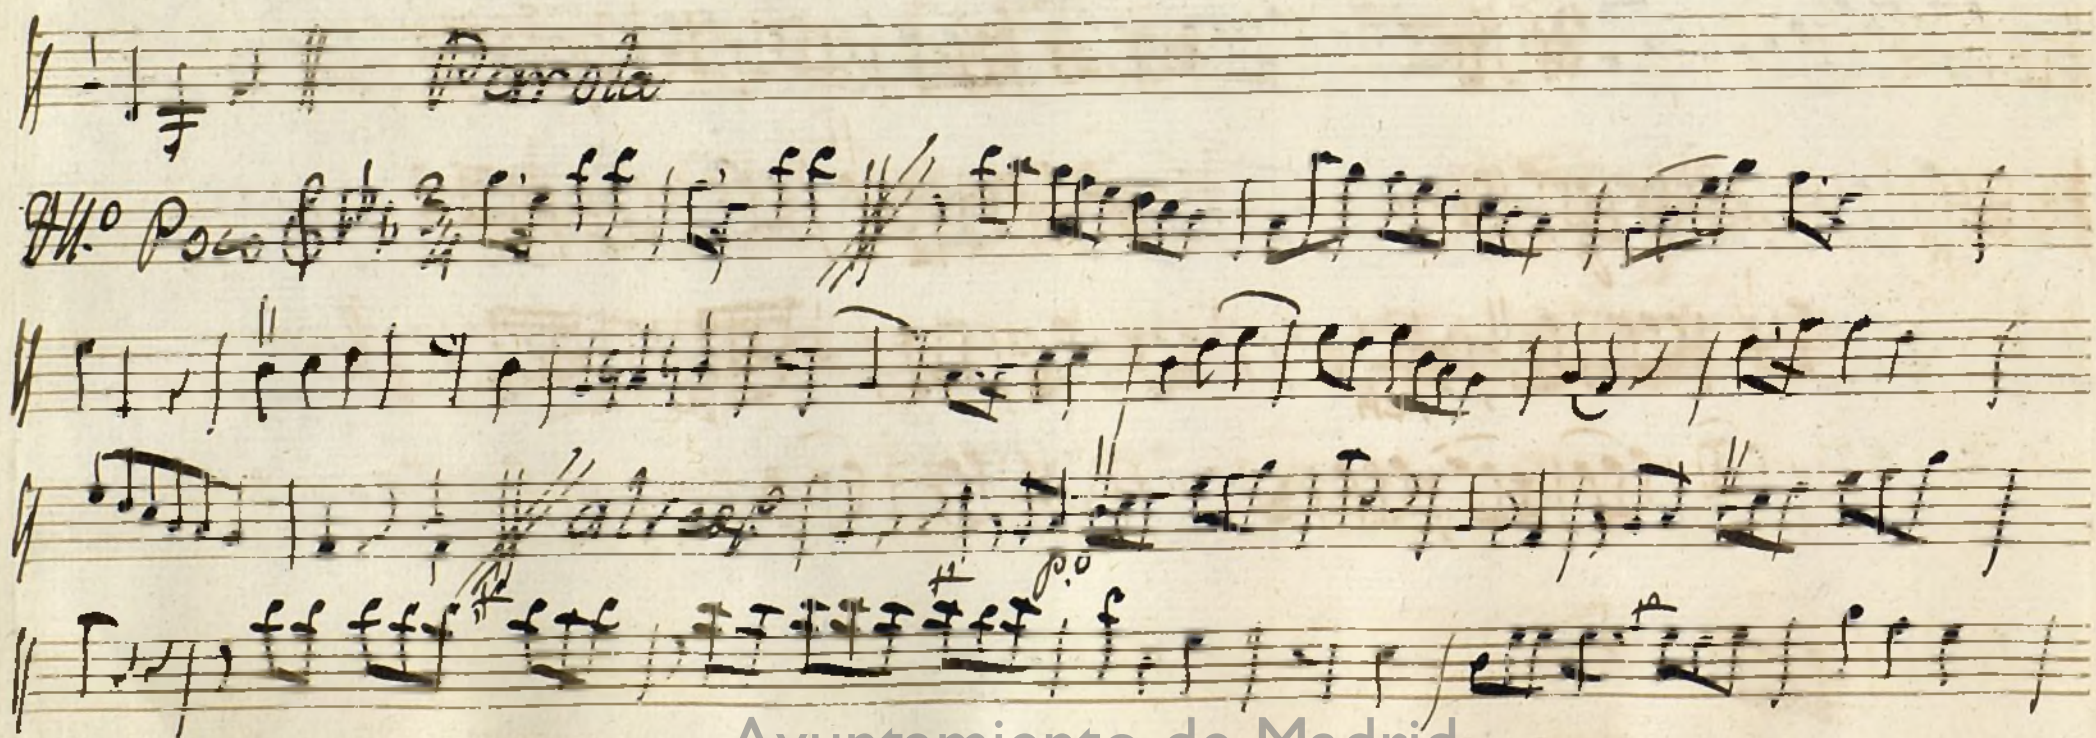 Parola
All.º Poco
3/4
al segº
p.º
Ayuntamiento de Madrid